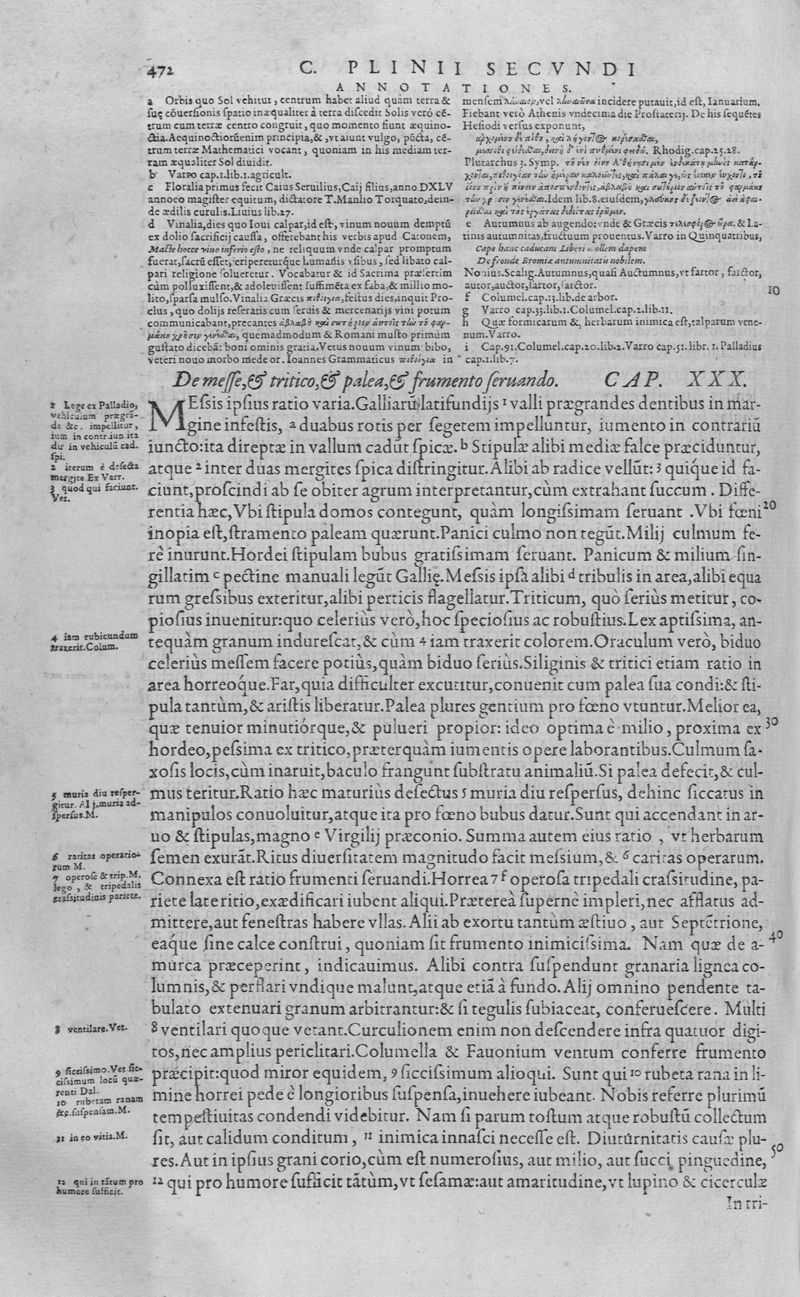 472
C. PLINII SECVNDI
ANNOTATIONES.
a Orbis quo Sol vehitur, centrum habet aliud quàm terra &
suę cōuersionis spatio inæqualiter à terra discedit Solis verò cē-
trum cum terræ centro congruit, quo momento fiunt æquino-
ctia. Aequinoctiorū enim principia, & , vt aiunt vulgo, pūcta, cē-
trum terræ Mathematici vocant, quoniam in his mediam ter-
ram æqualiter Sol diuidit.
b Varro cap.1.lib.1.agricult.
c Floralia primus fecit Caius Seruilius, Caij filius, anno DXLV
annoeo magister equitum, dictatore T. Manlio Torquato, dein-
de ædilis curulis. Liuius lib.27.
d Vinalia, dies quo Ioui calpar, id est, vinum nouum demptū
ex dolio sacrificij caussa, offerebant his verbis apud Catonem,
Macte hocce vino inferio esto, ne reliquum vnde calpar promptum
fuerat, sacrū esset, eripereturque humanis vsibus, sed libato cal-
pari religione solueretur. Vocabatur & id Sacrima præsertim
cùm polluxissent, & adoleuissent suffimēta ex faba, & millio mo-
lito, sparsa mulso. Vinalia Græcis πιθοίγια, festus dies, inquit Pro-
clus, quo dolijs referatis cum seruis & mercenarijs vini potum
communicabant, precantes
quemadmodum & Romani musto primùm
gustato dicebāt boni ominis gratia. Vetus nouum vinum bibo,
veteri nouo morbo medeor. Ioannes Grammaticus πιθοίγια in
mensem vel incidere putauit, id est, Ianuarium.
Fiebant verò Athenis vndecima die Prostaterij. De his sequētes
Hesiodi versus exponunt,
Rhodig.cap.25.28.
Plutarchus 3. Symp.
Idem lib.8. eiusdem,
e Autumnus ab augendo: vnde & Græcis & La-
tinis autumnitas, fructuum prouentus. Varro in Quinquatribus,
Cape hanc caducam Liberi mollem dapem
De fronde Bromiæ autumnitatis nobilem.
Nonius. Scalig. Autumnus, quasi Auctumnus, vt sartor, sarctor,
autor, auctor, sartor, sarctor.
10
f Columel.cap.13.lib.de arbor.
g Varro cap.33.lib.1. Columel.cap.2.lib.11.
h Quæ formicarum &, herbarum inimica est, talparum vene-
num. Varro.
i Cap.91. Columel.cap.20.lib.2. Varro cap.51. libr. 1. Palladius
cap.1.lib.7.
De messe, & tritico, & palea, & frumento seruando. CAP. XXX.
MEssis ipsius ratio varia. Galliarū latifundijs 1 valli prægrandes dentibus in mar-
gine infestis, a duabus rotis per segetem impelluntur, iumento in contrariū
iuncto: ita direptæ in vallum cadūt spicæ. b Stipulæ alibi mediæ falce præciduntur,
atque 2 inter duas mergites spica distringitur. Alibi ab radice vellūt: 3 quique id fa-
ciunt, proscindi ab se obiter agrum interpretantur, cùm extrahant succum. Diffe-
rentia hæc, Vbi stipula domos contegunt, quàm longissimam seruant. Vbi fœni
20
inopia est, stramento paleam quærunt. Panici culmo non tegūt. Milij culmum fe-
rè inurunt. Hordei stipulam bubus gratissimam seruant. Panicum & milium sin-
gillatim c pectine manuali legūt Gallię. Messis ipsa alibi d tribulis in area, alibi equa
rum gressibus exteritur, alibi perticis flagellatur. Triticum, quò seriùs metitur, co-
piosius inuenitur: quo celeriùs verò, hoc speciosius ac robustius. Lex aptissima, an-
tequàm granum indurescat, & cùm 4 iam traxerit colorem. Oraculum verò, biduo
celeriùs messem facere potiùs, quàm biduo seriùs. Siliginis & tritici etiam ratio in
area horreoque. Far, quia difficulter excutitur, conuenit cum palea sua condi: & sti-
pula tantùm, & aristis liberatur. Palea plures gentium pro fœno vtuntur. Melior ea,
quæ tenuior minutiórque, & pulueri propior: ideo optima è milio, proxima ex
30
hordeo, pessima ex tritico, præterquàm iumentis opere laborantibus. Culmum sa-
xosis locis, cùm inaruit, baculo frangunt substratu animaliū. Si palea defecit, & cul-
mus teritur. Ratio hæc maturiùs desectus 5 muria diu respersus, dehinc siccatus in
manipulos conuoluitur, atque ita pro fœno bubus datur. Sunt qui accendant in ar-
uo & stipulas, magno e Virgilij præconio. Summa autem eius ratio, vt herbarum
semen exurāt. Ritus diuersitatem magnitudo facit messium, & 6 caritas operarum.
Connexa est ratio frumenti seruandi. Horrea 7 f operosa tripedali crassitudine, pa-
riete lateritio, exædificari iubent aliqui. Præterea supernè impleri, nec afflatus ad-
mittere, aut fenestras habere vllas. Alij ab exortu tantùm æstiuo, aut Septētrione,
40
eaque sine calce construi, quoniam sit frumento inimicissima. Nam quæ de a-
murca præceperint, indicauimus. Alibi contra suspendunt granaria lignea co-
lumnis, & perflari vndique malunt, atque etiā à fundo. Alij omnino pendente ta-
bulato extenuari granum arbitrantur: & si tegulis subiaceat, conferuescere. Multi
8 ventilari quoque vetant. Curculionem enim non descendere infra quatuor digi-
tos, nec amplius periclitari. Columella & Fauonium ventum conferre frumento
præcipit: quod miror equidem, 9 siccissimum alioqui. Sunt qui 10 rubeta rana in li-
mine horrei pede è longioribus suspensa, inuehere iubeant. Nobis referre plurimū
tempestiuitas condendi videbitur. Nam si parum tostum atque robustū collectum
sit, aut calidum conditum, 11 inimica innasci necesse est. Diuturnitatis causæ plu-
50
res. Aut in ipsius grani corio, cùm est numerosius, aut milio, aut succi pinguedine,
12 qui pro humore sufficit tātùm, vt sesamæ: aut amaritudine, vt lupino & cicerculæ
In tri-
1 Lege ex Palladio,
vehiculum prægrā-
de &c. impellitur,
ium in contrarium ita
du in vehiculū cad.
spi.
2 iterum è desecta
mergite Ex Varr.
3 quod qui faciunt.
Vet.
4 iam rubicundum
traxerit. Colum.
5 muria diu resper-
gitur. Alij, muria ad-
spersus. M.
6 raritas operario-
rum M.
7 operosè & trip. M.
lego, & tripedalis
crassitudinis pariete.
8 ventilare. Vet.
9 siccissimo. Vet. sic-
cissimum locū quæ-
renti Dal.
10 rubetam ranam
&c. suspensam. M.
11 in eo vitia. M.
12 qui in tātum pro
humore sufficit.